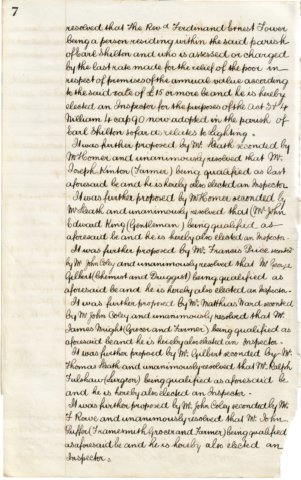 7
resolved that the Revd Ferdinand Ernest Tower
being a person residing within the said parish
of Earl Shilton and who is assessed or charged
by the last rate made for the relief of the poor in
respect of premises of the annual value according
to the said rate of £15 or more be and he is hereby
elected an Inspector for the purposes of the Act 3 & 4
William 4 cap 90 now adopted in the parish of
Earl Shilton so far as relates to Lighting.
It was further proposed by Mr. Heath seconded by
Mr Homer and unanimously resolved that Mr.
Joseph Kinton (Farmer) being qualified as last
aforesaid be and he is hereby also elected an Inspector.
It was further proposed by Mr Homer seconded by
Mr Heath and unanimously resolved that (Mr John
Edward King (Gentleman) being qualified as
aforesaid be and he is hereby also elected an Inspector.
It was further proposed by Mr. Francis Price seconded
by Mr John Coley and unanimously resolved that Mr George
Gilbert (Chemist and Druggist) being qualified as
aforesaid be and he is hereby also elected an Inspector.
It was further proposed by Mr. Matthias Ward seconded
by Mr John Coley and unanimously resolved that Mr.
James Wright (Grocer and Farmer) being qualified as
aforesaid be and he is hereby also elected an Inspector.
It was further proposed by Mr. Gilbert seconded by Mr.
Thomas Heath and unanimously resolved that Mr. Ralph
Fulshaw (Surgeon) being qualified as aforesaid be
and he is hereby also elected an Inspector.
It was further proposed by Mr. John Coley seconded by Mr.
F Rowe and unanimously resolved that Mr. John
Puffer (Framesmith Grocer and Farmer) being qualified
as aforesaid be and he is hereby also elected an
Inspector.